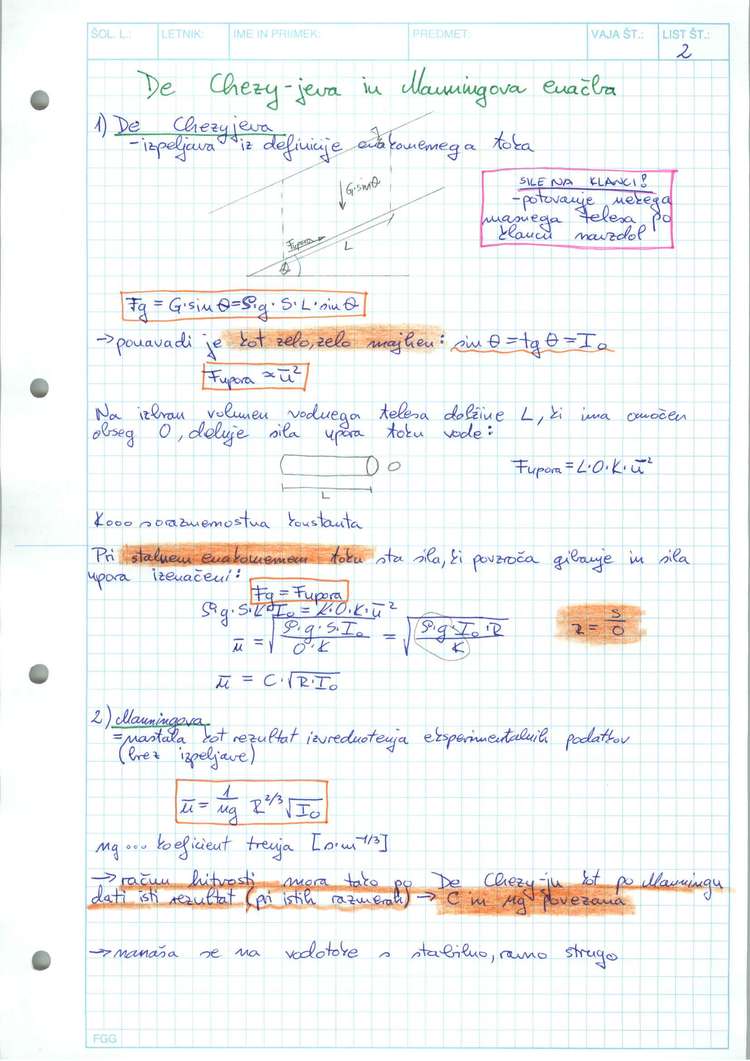 ŠOL. L.: LETNIK: IME IN PRIIMEK: PREDMET: VAJA ŠT.: LIST ŠT.:
2
De Chezy-jeva in Manningova enačba
1) De Chezyjeva
-izpeljava iz definicije enakomernega toka
G·sinθ
Fupora
L
θ
SILE NA KLANCU!
-potovanje nekega
masnega telesa po
klancu navzdol
Fg = G·sinθ = ρ·g·S·L·sinθ
→ponavadi je kot zelo, zelo majhen: sinθ = tgθ = I₀
Fupora ≈ ū²
Na izbran volumen vodnega telesa dolžine L, ki ima omočen
obseg O, deluje sila upora toku vode:
O
L
Fupora = L·O·K·ū²
K... sorazmernostna konstanta
Pri stalnem enakomernem toku sta sila, ki povzroča gibanje in sila
upora izenačeni:
Fg = Fupora
ρ·g·S·L·I₀ = L·O·K·ū²
ū = √(ρ·g·S·I₀ / O·K) = √(ρ·g·I₀·R / K)
R = S/O
ū = C·√R·I₀
2) Manningova
=nastala kot rezultat izvrednotenja eksperimentalnih podatkov
(brez izpeljave)
ū = 1/ng R^2/3 √I₀
ng ... koeficient trenja [s·m^-1/3]
→ račun hitrosti mora tako po De Chezy-ju kot po Manningu
dati isti rezultat (pri istih razmerah) → C in ng povezana
→nanaša se na vodotoke s stabilno, ravno strugo
FGG